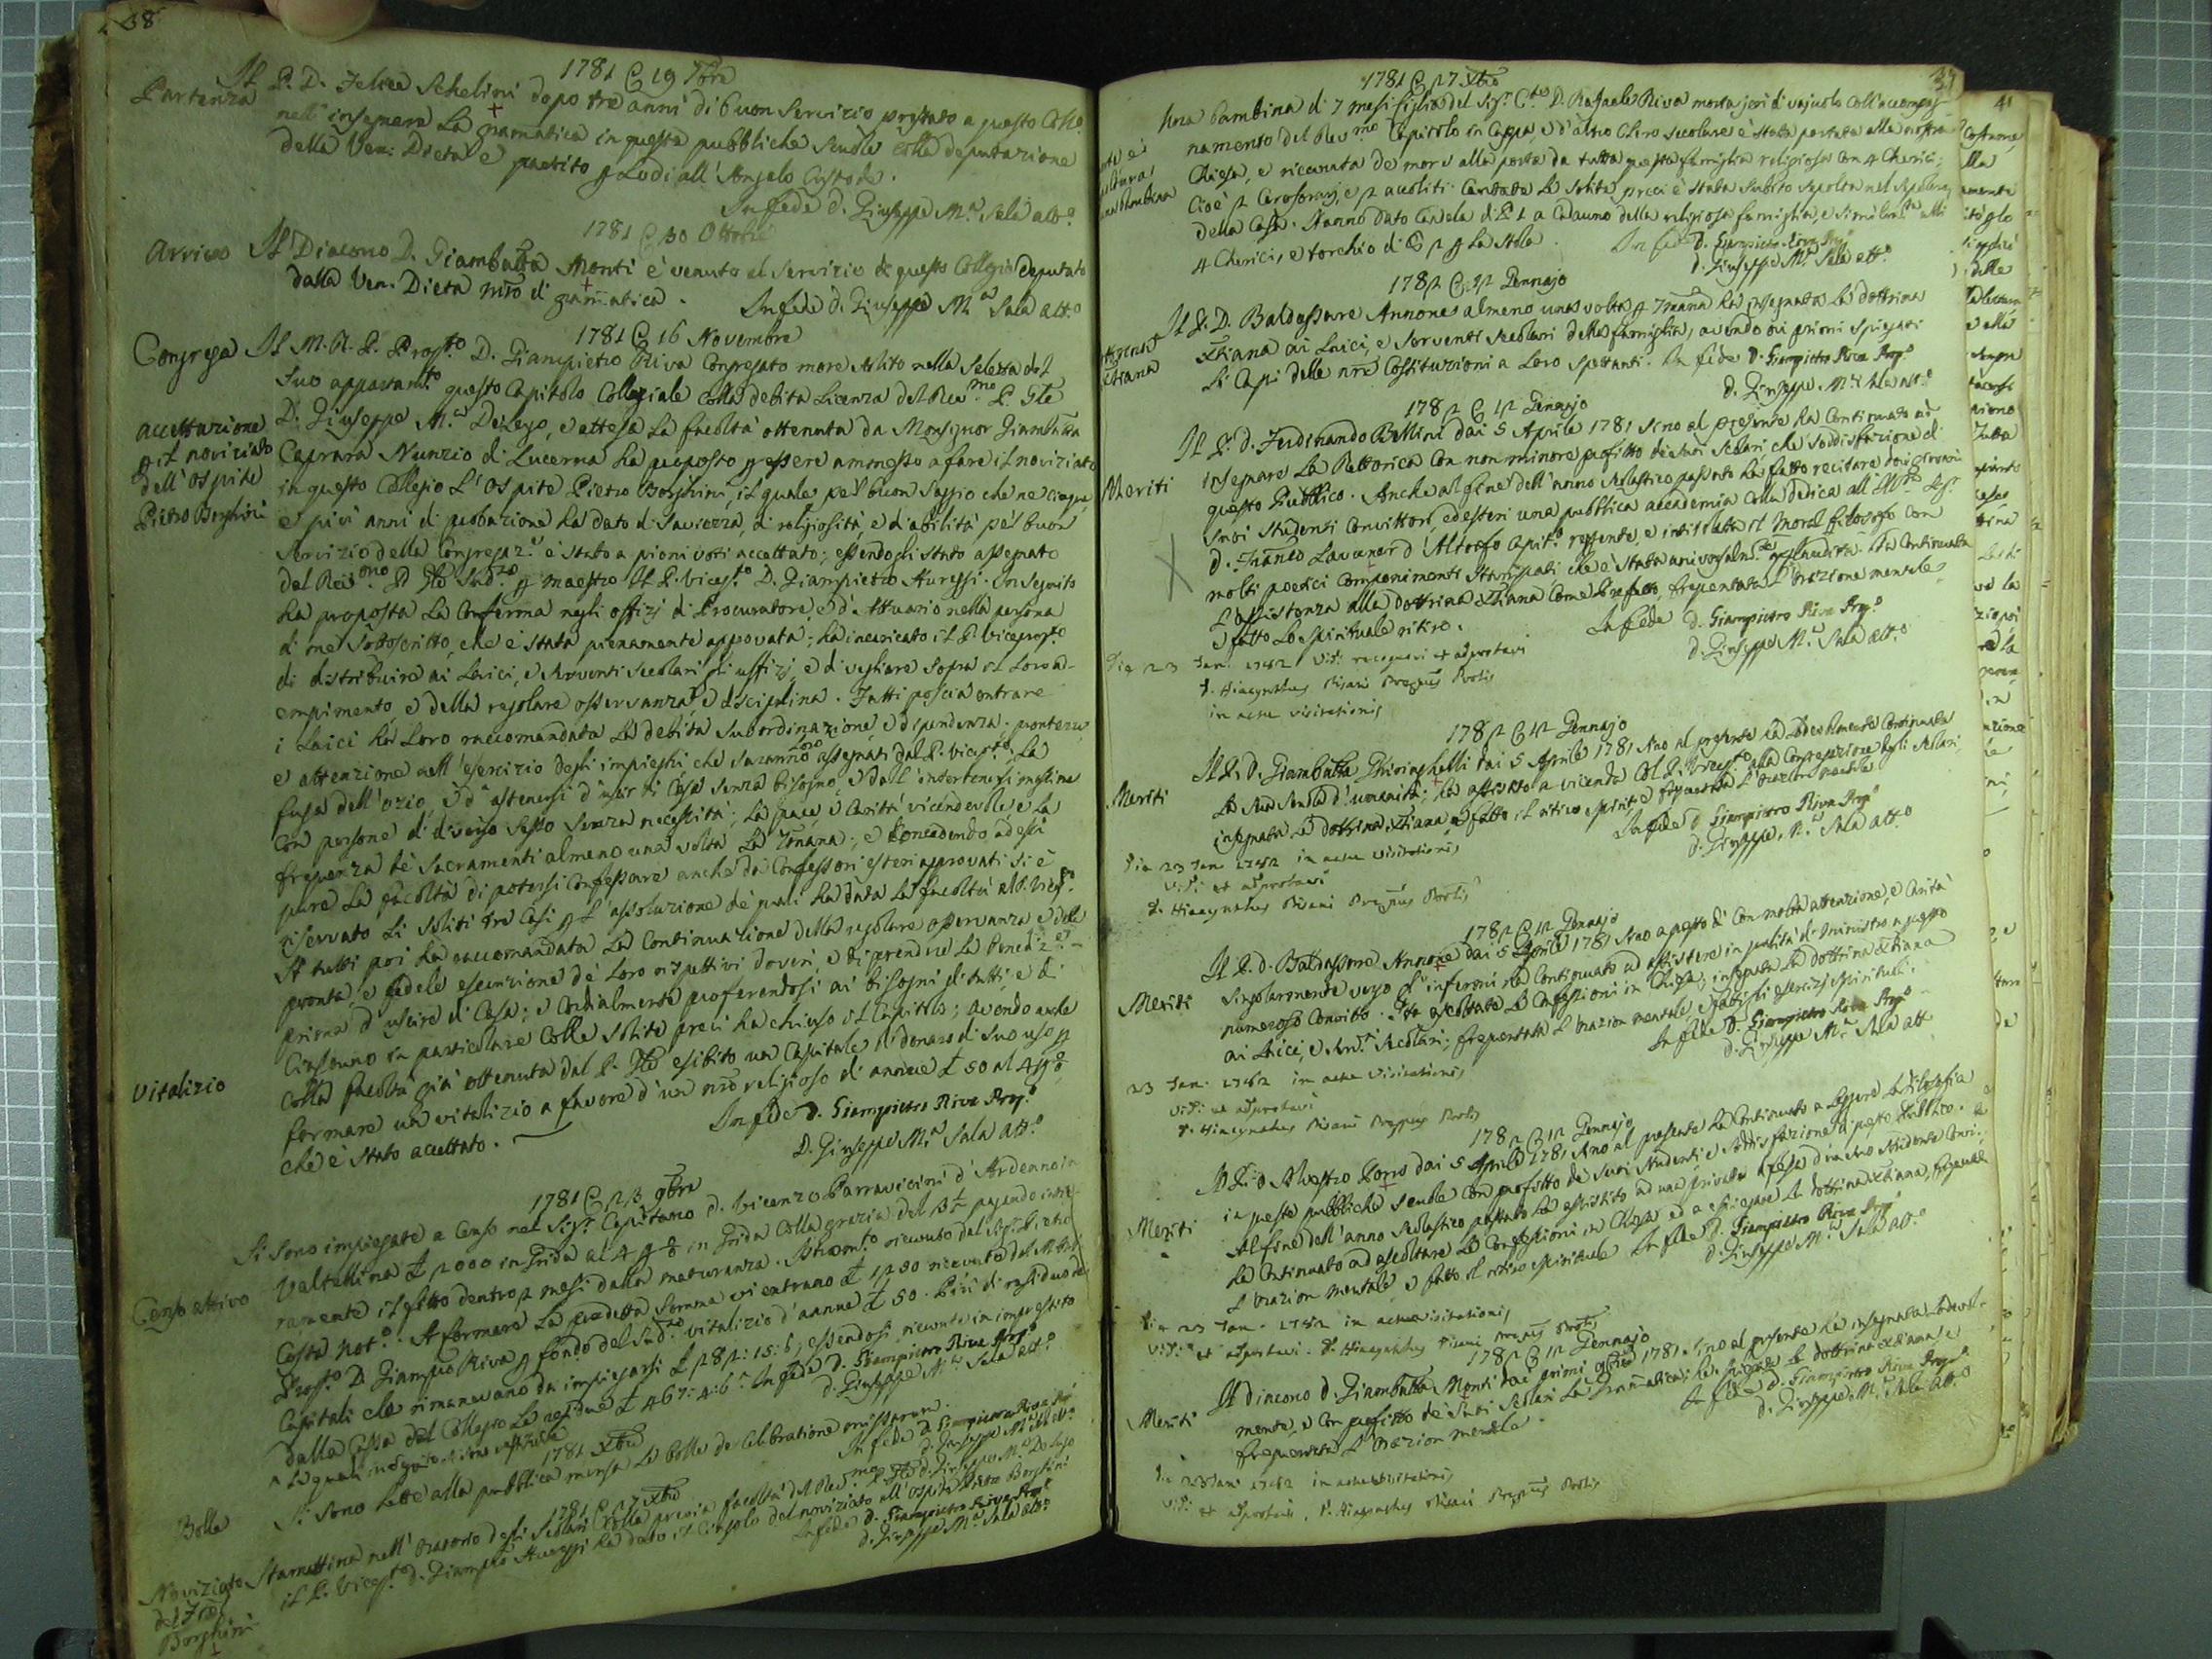 38
1781 19 7bre
Partenza Il P. D. Felice Schelini dopo tre anni di buon servizio prestato a questo Coll.o
nell'insegnare la gramatica in queste pubbliche scuole colla deputazione
della Ven: Dieta è partito p Lodi all'Angelo Custode.
In fede d. Giuseppe M.a Sala att.o
1781 30 Ottobre
Arrivo Il Diacono D. Giambatta Monti è venuto al servizio di questo Collegio deputato
dalla Ven. Dieta mro di gramatica. In fede d. Giuseppe M.a Sala att.o
1781 16 Novembre
Congrega Il M. R. P. Prop.to D. Giampietro Riva congregato more solito nella saletta del
suo appartam.to questo Capitolo Collegiale colla debita licenza del Rev.mo P. Gle
D. Giuseppe M.a De Lugo, e attesa la facoltà ottenuta da Monsignor Giambatta
accettazione Caprara Nunzio di Lucerna ha proposto p essere ammesso a fare il noviziato
p il noviziato in questo Collegio l'Ospite Pietro Borghini, il quale pel buon saggio che ne cinque,
dell'Ospite e più anni di probazione ha dato di saviezza, di religiosità, e d'abilità pel buon
Pietro Borghini servizio della Congregaz.e è stato a pieni voti accettato; essendogli stato assegnato
dal Rev.mo P. Gle Sud.to p maestro il P. Vicep.to D. Giampietro Auressi. In seguito
ha proposta la conferma negli offizj di Procuratore, e d'Attuario nella persona
di me sottoscritto, che è stata pienamente approvata; ha incaricato il P. Viceprep.to
di distribuire ai laici, e serventi secolari gli uffizj, e di vegliare sopra il loro ad-
empimento, e della regolare osservanza, e disciplina. Fatti poscia entrare
i laici ha loro raccomandata la debita subordinazione, e dipendenza; prontezza
e attenzione nell'esercizio degli impieghi che saranno loro assegnati dal P. Vicep.to; la
fuga dell'ozio, e d'astenersi d'uscir di Casa senza bisogno, e dall'intertenersi massime
con persone di diverso sesso senza necessità; la pace, e carità vicendevole, e la
frequenza de' sacramenti almeno una volta la 7mana; e concedendo ad essi
pure la facoltà di potersi confessare anche da confessori esteri approvati si è
riservato li soliti tre casi p l'assoluzione de' quali ha data la facoltà al P. Vicep.to
A tutti poi ha raccomandata la continuazione della regolare osservanza e della
pronta, e fedele esecuzione de' loro rispettivi doveri, e di prendere la benediz.e
prima d'uscire di Casa; e cordialmente proferendosi ai bisogni di tutti, e di
ciascuno in particolare colle solite preci ha chiuso il Capitolo; avendo anche
Vitalizio colla facoltà già ottenuta dal P. Gle esibito un capitale di denaro di suo uso p
formare un vitalizio a favore d'un nro religioso di annue £ 50 al 4 p %
che è stato accettato. In fede D. Giampietro Riva Prop.o
D. Giuseppe M.a Sala att.o
1781 23 9bre
Si sono impiegate a censo nel Sig.r Capitano d. Vicenzo Parravicini d'Ardenno in
Valtellina £ 2000 in grida al 4 p % in grida colla grazia del
Censo attivo ramente il fitto dentro 2 mesi dalla maturanza. Istrom.to ricevuto dal Sig.r Pietro
Costa Not.o. A formare la predetta somma vi entrano £ 1250 ricevute dal M.R.P.
Prop.to D. Giampietro Riva p fondo del Sud.to vitalizio d'annue £ 50. Più di residuo de'
Capitali che rimanevano da impiegarsi £ 282:15:6; essendosi ricevute in imprestito
dalla Cassa del Collegio le residue £ 467:4:6 In fede D. Giampietro Riva Prop.o
d. Giuseppe M.a Sala att.o
1781 Xbre
Bolle Si sono lette alla pubblica mensa le Bolle de celebratione missarum.
In fede d. Giampietro Riva Prop.o
d. Giuseppe M.a Sala att.o
1781 27 Xbre
Noviziato Stamattina nell'oratorio degli scolari colla previa facoltà del Rev.mo P. Gle d. Giuseppe M.a De Lugo
del Borghini il P. Vicep.to d. Giampietro Auressi ha dato il cingolo del noviziato all'ospite Pietro Borghini
In fede d. Giampietro Riva Prop.o
d. Giuseppe M.a Sala att.o
39
1781 27 Xbre
Una bambina di 7 mesi figlia del Sig.r C.te D. Rafaele Riva morta jeri di vajuolo coll'accompag-
namento del Rev.mo Capitolo in Cappa, e d'altro Clero secolare è stata portata alla nostra
Chiesa, e ricevuta de more alla porta da tutta questa famiglia religiosa con 4 Cherici;
cioè 2 Ceroferarj, e 2 accoliti. Cantate le solite preci è stata subito sepolta nel sepolcro
della Casa. Hanno dato candela di £ 1 a cadauno della religiosa famiglia, e similm.te alli
4 Cherici, e torchio di 2 p la stola. In fede D. Giampietro Riva Prop.o
d. Giuseppe M.a Sala att.o
1782 12 Gennajo
Il P. D. Baldassare Annone almeno una volta p 7mana ha insegnata la dottrina
Xtiana ai laici, e serventi secolari della famiglia, avendo ai primi spiegati
li Capi delle nre Costituzioni a loro spettanti. In fede D. Giampietro Riva Prop.o
d. Giuseppe M.a Sala att.o
1782 12 Gennajo
Il P. D. Ferdinando Bellini dai 5 Aprile 1781 sino al presente ha continuato ad
Meriti insegnare la Rettorica con non minore profitto de' suoi scolari, che soddisfazione di
questo Pubblico. Anche al fine dell'anno scolastico passato ha fatto recitare dai giovani
suoi studenti convittori, ed esteri una pubblica accademia colla dedica all'Ill.mo Sig.r
d. Franco Lavener d'Altorfo Capit.o reggente, e intitolata il Moral filosofo con
molti poetici componimenti stampati che è stata universalm.te applaudita. Ha continuata
l'assistenza alla dottrina Xtiana come Prefetto, frequentata l'orazione mentale,
e fatto lo spirituale ritiro. In fede d. Giampietro Riva Prop.o
d. Giuseppe M.a Sala att.o
Die 23 Jan. 1782 Vidi recognovi et adprobavi
d. Hiacynthus Pisani
in actu visitationis
1782 12 Gennajo
Meriti Il P. D. Giambatta Ghiringhelli dai 5 Aprile 1781 sino al presente ha lodevolmente continuata
la sua scuola d'umanità; ha assistito a vicenda col P. Vicep.to alla Congregazione degli scolari,
insegnata la dottrina Xtiana, e fatto il ritiro spirit.e, e frequentata l'orazion mentale
In fede d. Giampietro Riva Prop.o
d. Giuseppe M.a Sala att.o
Die 23 Jan 1782 in actu visitationis
vidi et adprobavi
d. Hiacynthus Pisani
1782 12 Gennajo
Il P. D. Baldassare Annone dai 5 Aprile 1781 sino a questo dì con molta attenzione, e carità
Meriti singolarmente verso gl'infermi ha continuato ad assistere in qualità di Ministro a questo
numeroso Convitto. Ha ascoltate le confessioni in Chiesa; insegnata la dottrina Xtiana
ai laici, e serv.ti secolari; frequentata l'orazion mentale, e fatti gli esercizj spirituali.
In fede D. Giampietro Riva Prop.o
d. Giuseppe M.a Sala att.
23 Jan. 1782 in actu visitationis
vidi et adprobavi
d. Hiacynthus Pisani
1782 12 Gennajo
Il P. D. Silvestro dai 5 Aprile 1781 sino al presente ha continuato a leggere la Filosofia
Meriti in queste pubbliche scuole con profitto de' suoi studenti, e soddisfazione di questo Pubblico.
Al fine dell'anno scolastico passato ha assistito ad una privata difesa d'un suo studente
ha continuato ad ascoltare le confessioni in Chiesa ed a spiegare la dottrina Xtiana, frequentata
l'orazion mentale, e fatto il ritiro spirituale In fede d. Giampietro Riva Prop.o
d. Giuseppe M.a Sala att.o
Die 23 Jan. 1782 in actu visitationis
vidi et adprobavi. d. Hiacynthus Pisani
1782 12 Gennajo
Il Diacono d. Giambatta Monti dai primi 9bre 1781 sino al presente ha insegnata lodevol-
Meriti mente, e con profitto de' suoi scolari la Grammatica; ha spiegata la dottrina Xtiana, e
frequentata l'orazion mentale. In fede D. Giampietro Riva Prop.o
d. Giuseppe M.a Sala att.o
Die 23 Jan. 1782 in actu visitationis
vidi et adprobavi, d. Hiacynthus Pisani
41